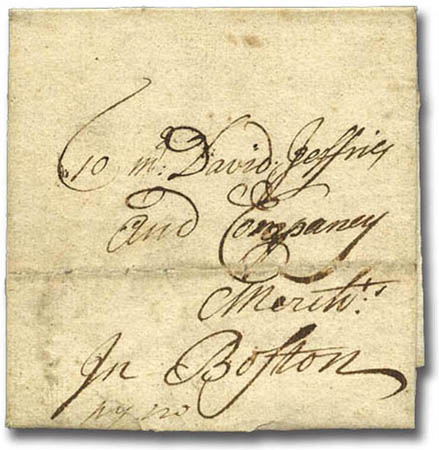 To mr. David Jeffries
and Companey
Mercht.s
In Boston